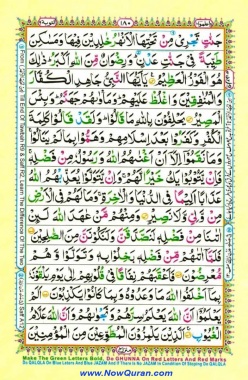 جَنّٰتٍ تَجْرِىْ مِنْ تَحْتِهَا الْاَنْهٰرُ خٰلِدِيْنَ فِيْهَا وَمَسٰكِنَ
طَيِّبَةً فِىْ جَنّٰتِ عَدْنٍ ؕ وَرِضْوَانٌ مِّنَ اللّٰهِ اَكْبَرُ ؕ ذٰلِكَ
هُوَ الْفَوْزُ الْعَظِيْمُ يٰۤاَيُّهَا النَّبِىُّ جَاهِدِ الْكُفَّارَ
وَالْمُنٰفِقِيْنَ وَاغْلُظْ عَلَيْهِمْ ؕ وَمَاْوٰٮهُمْ جَهَنَّمُ ؕ وَبِئْسَ
الْمَصِيْرُ يَحْلِفُوْنَ بِاللّٰهِ مَا قَالُوْا ؕ وَلَقَدْ قَالُوْا كَلِمَةَ
الْكُفْرِ وَكَفَرُوْا بَعْدَ اِسْلَامِهِمْ وَهَمُّوْا بِمَا لَمْ يَنَالُوْا ۚ
وَمَا نَقَمُوْۤا اِلَّاۤ اَنْ اَغْنٰٮهُمُ اللّٰهُ وَرَسُوْلُهٗ مِنْ فَضْلِهٖ ۚ
فَاِنْ يَّتُوْبُوْا يَكُ خَيْرًا لَّهُمْ ۚ وَاِنْ يَّتَوَلَّوْا يُعَذِّبْهُمُ اللّٰهُ
عَذَابًا اَلِيْمًا ۙ فِى الدُّنْيَا وَالْاٰخِرَةِ ۚ وَمَا لَهُمْ فِى الْاَرْضِ
مِنْ وَّلِىٍّ وَّلَا نَصِيْرٍ وَمِنْهُمْ مَّنْ عٰهَدَ اللّٰهَ لَئِنْ
اٰتٰٮنَا مِنْ فَضْلِهٖ لَنَصَّدَّقَنَّ وَلَنَكُوْنَنَّ مِنَ الصّٰلِحِيْنَ
فَلَمَّاۤ اٰتٰٮهُمْ مِّنْ فَضْلِهٖ بَخِلُوْا بِهٖ وَتَوَلَّوْا وَّهُمْ
مُّعْرِضُوْنَ فَاَعْقَبَهُمْ نِفَاقًا فِىْ قُلُوْبِهِمْ اِلٰى يَوْمِ يَلْقَوْنَهٗ
بِمَاۤ اَخْلَفُوا اللّٰهَ مَا وَعَدُوْهُ وَبِمَا كَانُوْا يَكْذِبُوْنَ اَلَمْ
يَعْلَمُوْۤا اَنَّ اللّٰهَ يَعْلَمُ سِرَّهُمْ وَنَجْوٰٮهُمْ وَاَنَّ اللّٰهَ عَلَّامُ
الْغُيُوْبِ اَلَّذِيْنَ يَلْمِزُوْنَ الْمُطَّوِّعِيْنَ مِنَ الْمُؤْمِنِيْنَ
Make The Green Letters Bold, Do GHUNNA On Red Letters And Red Marks
www.NowQuran.com